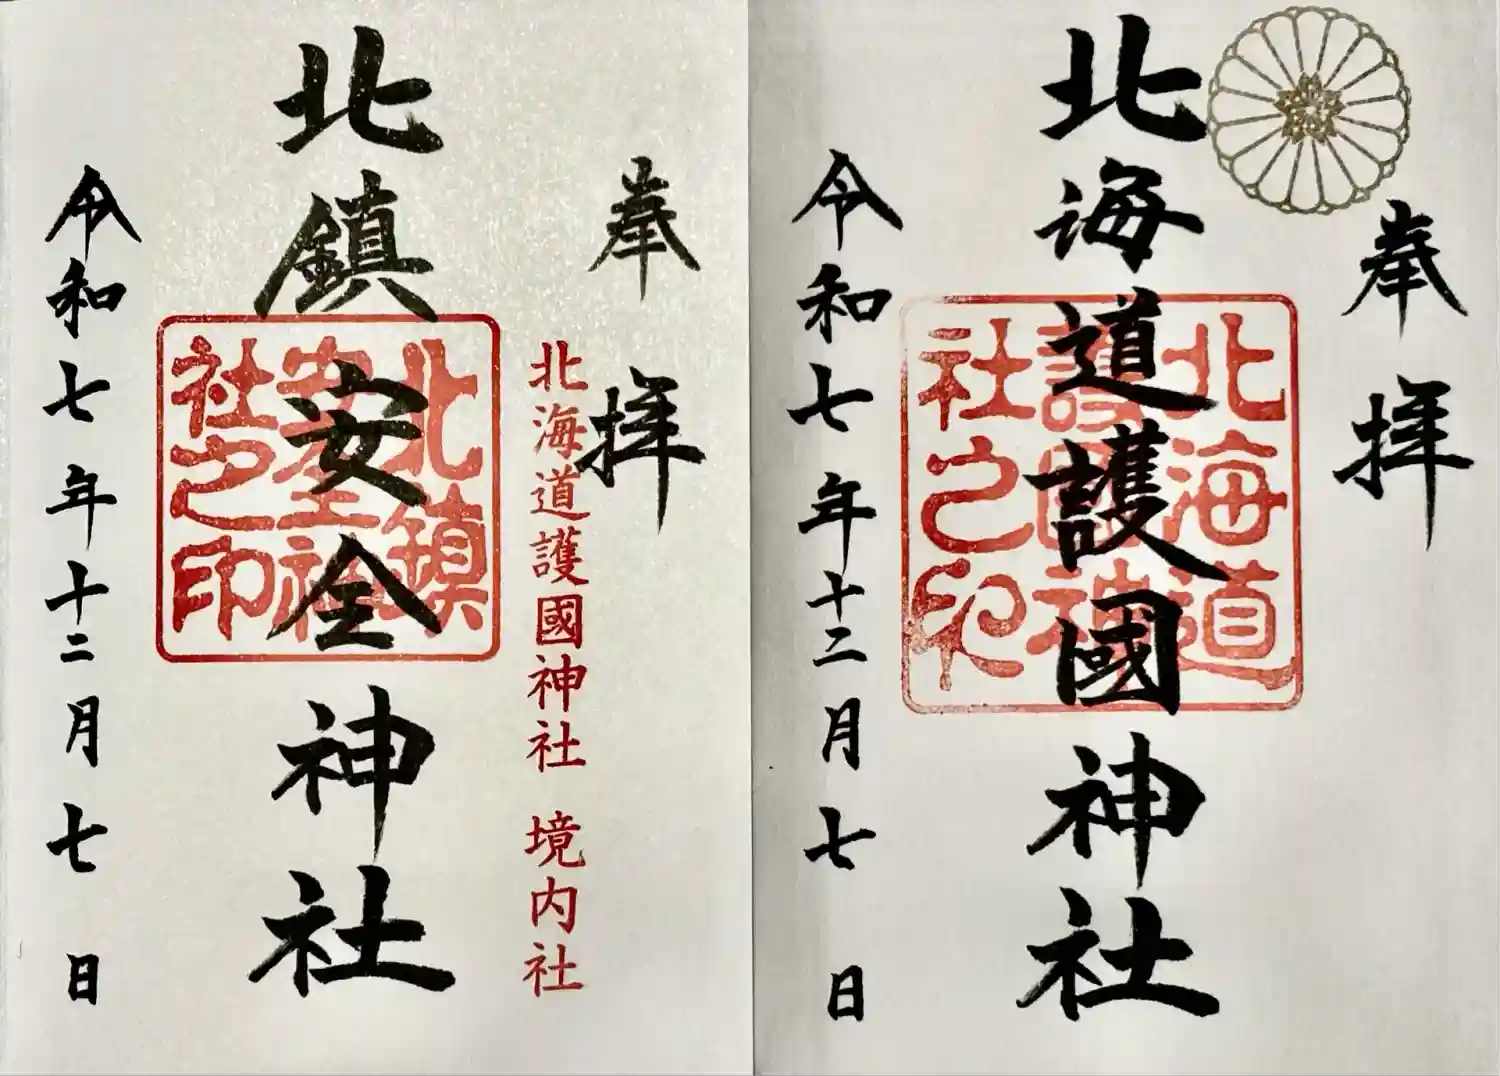 奉拝
北海道護國神社
北海道
護國神
社之印
令和七年十二月七日
奉拝
北海道護國神社 境内社
北鎮安全神社
北鎮
安全神
社之印
令和七年十二月七日